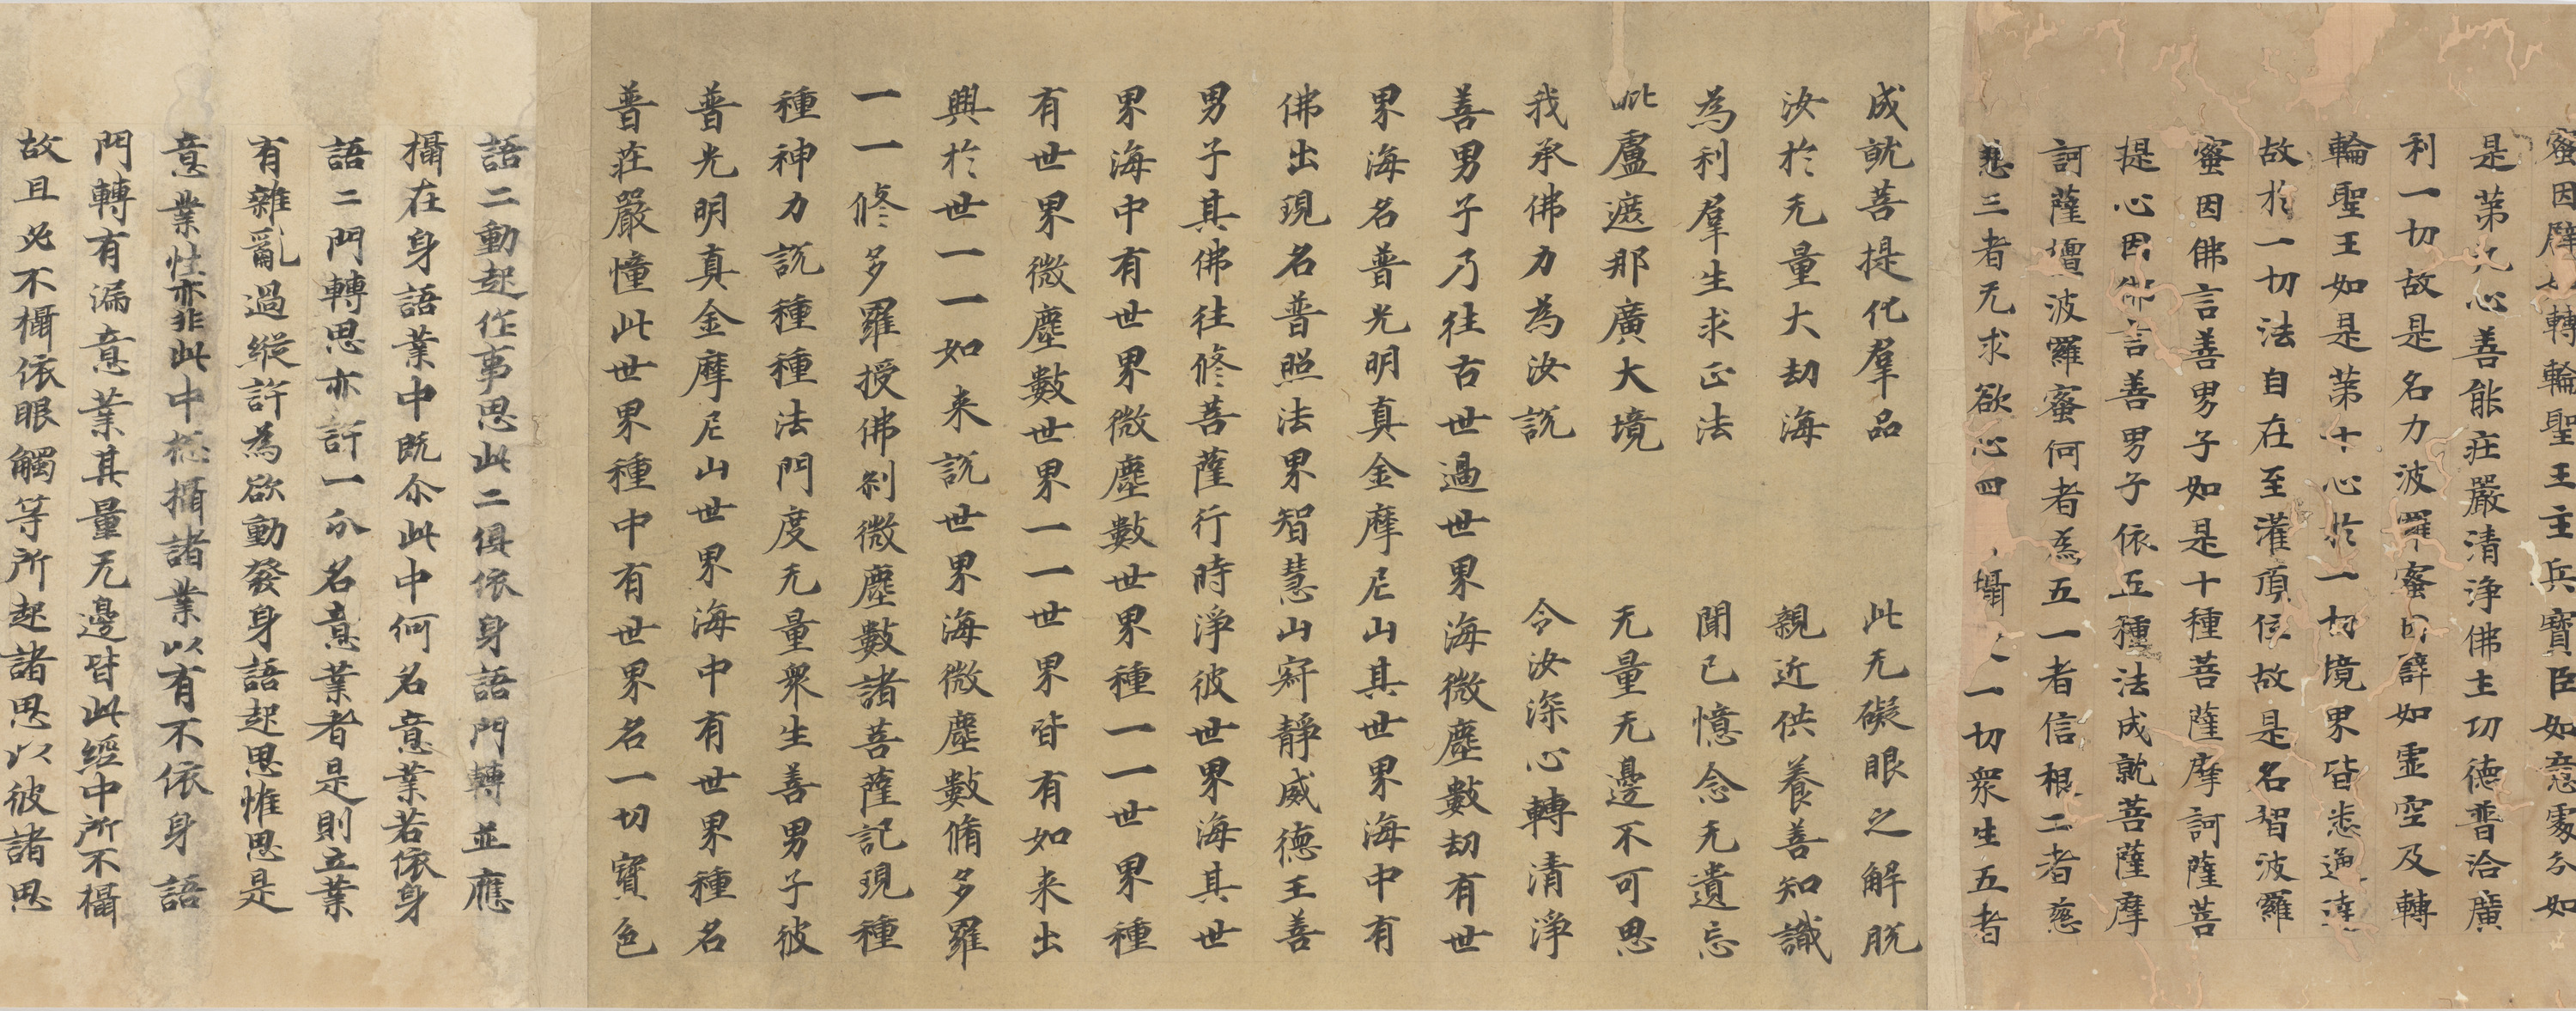 蜜因譬如轉輪聖王主兵寶臣如意處分如
是第九心善能莊嚴清淨佛土功德普洽廣
利一切故是名力波羅蜜因譬如虛空及轉
輪聖王如是第十心於一切境界皆悉通達
故於一切法自在至灌頂位故是名智波羅
蜜因佛言善男子如是十種菩薩摩訶薩菩
提心因佛言善男子依五種法成就菩薩摩
訶薩檀波羅蜜何者為五一者信根二者慈
悲三者无求欲心四 攝 一切衆生五者
成就菩提化羣品 此无礙眼之解脫
汝於无量大劫海 親近供養善知識
為利羣生求正法 聞已憶念无遺忘
毗盧遮那廣大境 无量无邊不可思
我承佛力為汝說 令汝深心轉清淨
善男子乃往古世過世界海微塵數劫有世
界海名普光明真金摩尼山其世界海中有
佛出現名普照法界智慧山寂靜威德王善
男子其佛往修菩薩行時淨彼世界海其世
界海中有世界微塵數世界種一一世界種
有世界微塵數世界一一世界皆有如来出
興於世一一如来說世界海微塵數脩多羅
一一修多羅授佛刹微塵數諸菩薩記現種
種神力說種種法門度无量衆生善男子彼
普光明真金摩尼山世界海中有世界種名
普莊嚴幢此世界種中有世界名一切寶色
語二動起作事思此二俱依身語門轉並應
攝在身語業中既尒此中何名意業若依身
語二門轉思亦許一分名意業者是則立業
有雜亂過縱許為欲動發身語起思惟思是
意業性亦非此中捴攝諸業以有不依身語
門轉有漏意業其量无邊皆此經中所不攝
故且必不攝依眼觸等所起諸思以彼諸思